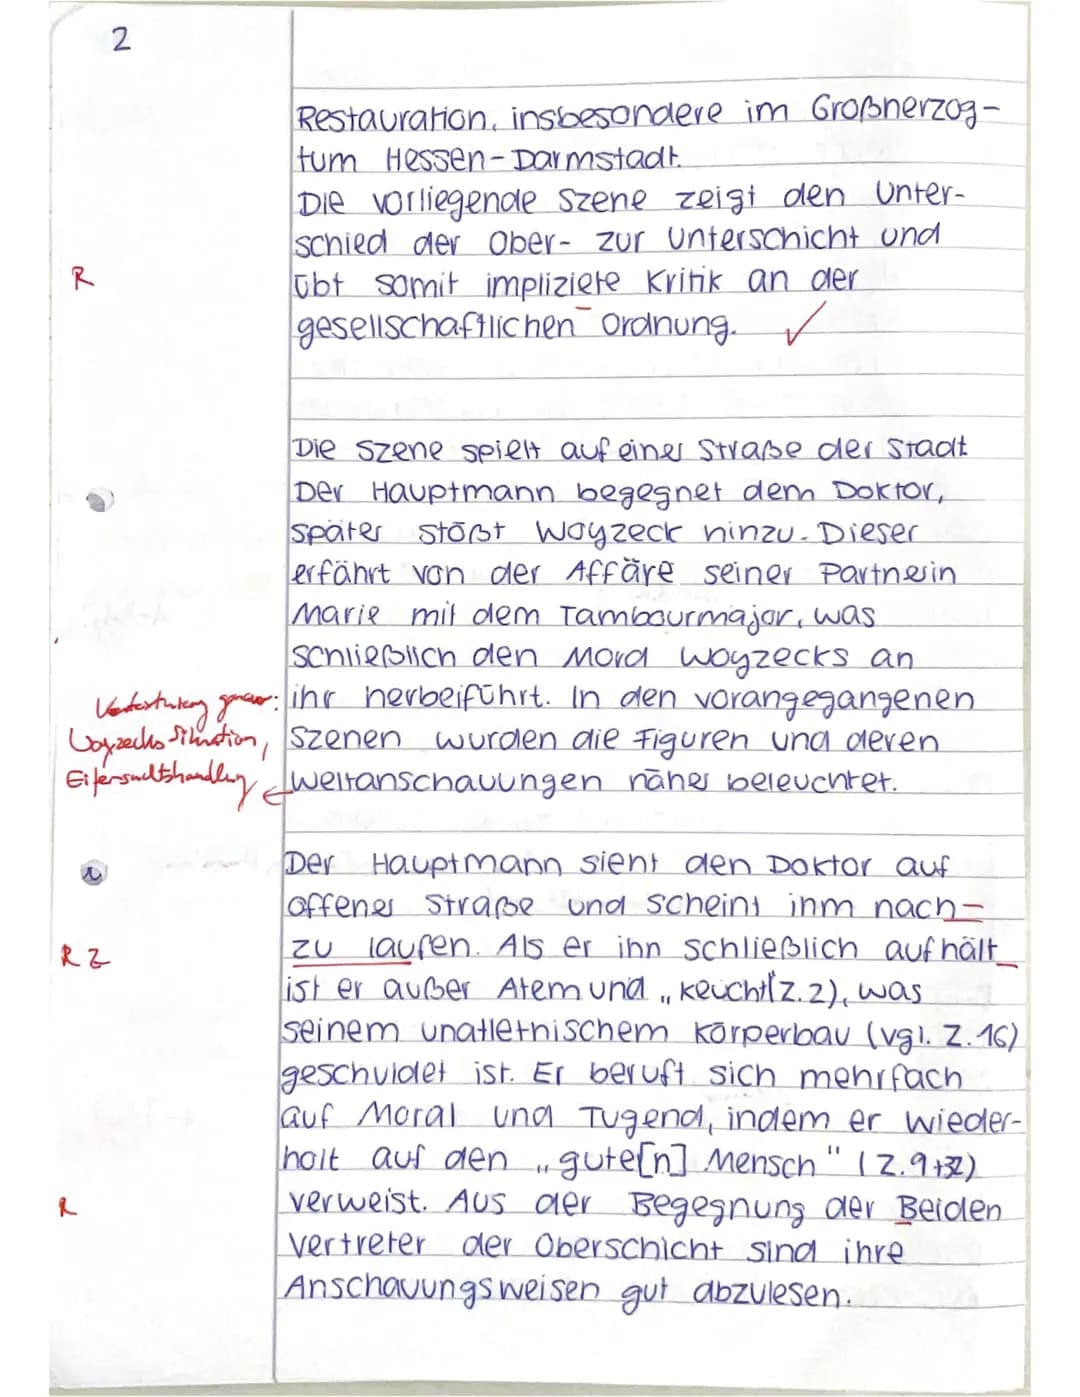 2
Restauration, insbesondere im Großherzog-
tum Hessen-Darmstadt.
Die vorliegende Szene zeigt den Unter-
schied der Ober- zur Unterschicht und
R
übt somit impliziete Kritik an der
gesellschaftlichen Ordnung. ✓
Die Szene spielt auf einer Straße der Stadt
Der Hauptmann begegnet dem Doktor,
später stößt Woyzeck hinzu. Dieser
erfährt von der Affäre seiner Partnerin
Marie mit dem Tambourmajor, was
schließlich den Mord Woyzecks an
ihr herbeiführt. In den vorangegangenen
Szenen wurden die Figuren und deren
Weltanschauungen näher beleuchtet.
genauer:
Woyzecks Situation,
Eifersuchtshandlung
Der Hauptmann sieht den Doktor auf
offener Straße und scheint ihm nach-
R Z
zu laufen. Als er ihn schließlich aufhält
ist er außer Atem und „keucht" (Z.2), was
seinem unathletnischem Körperbau (vgl. Z.16)
geschuldet ist. Er beruft sich mehrfach
auf Moral und Tugend, indem er wieder-
holt auf den „gute[n] Mensch" (Z.9+32)
R
verweist. Aus der Begegnung der Beiden
Vertreter der Oberschicht sind ihre
Anschauungsweisen gut abzulesen.